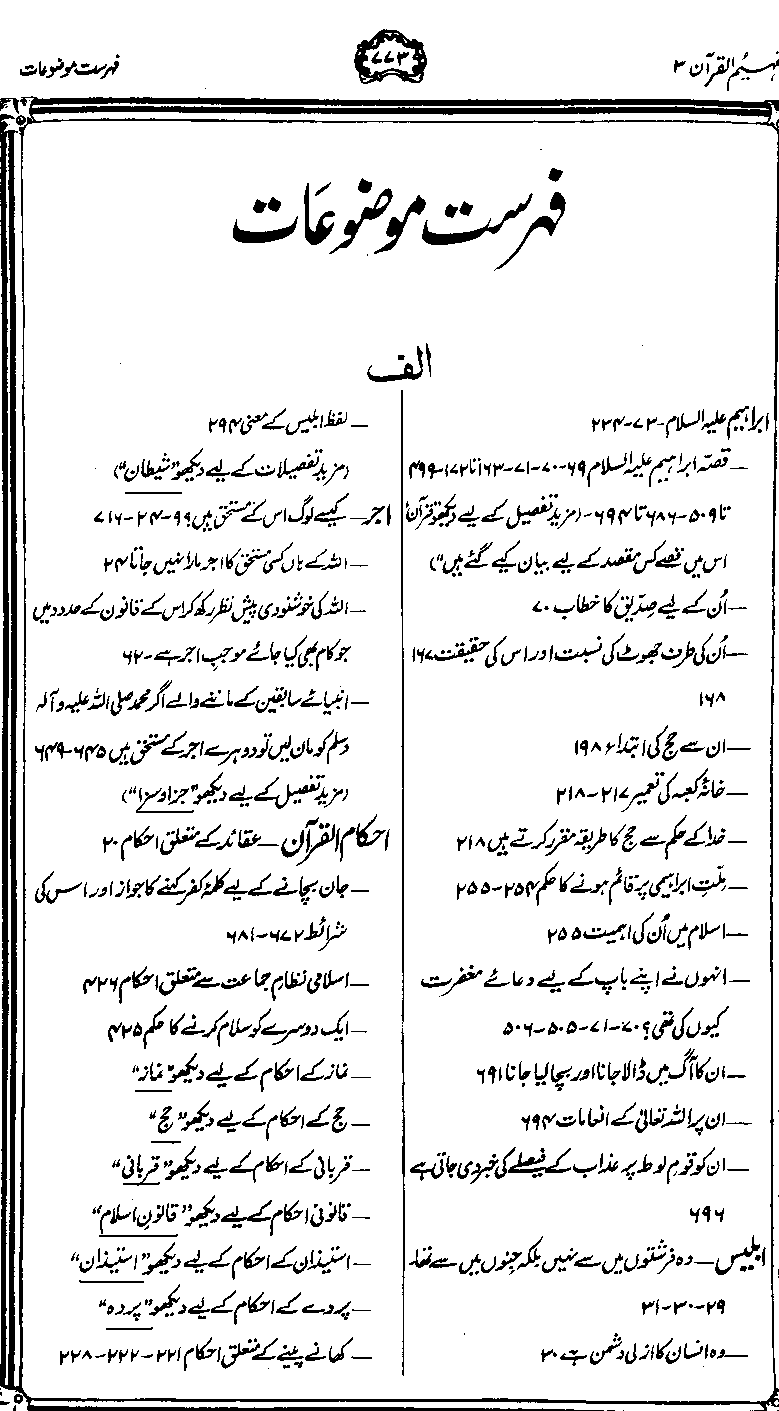 تفہیم القرآن ۳
۷۷۳
فہرست موضوعات
فہرست موضوعات
الف
ابراہیم علیہ السلام ۷۳-۲۳۴
— قصّہ ابراہیم علیہ السلام ۶۹-۷۰-۷۱-۱۶۳ تا ۱۷۲-۴۹۹
تا ۵۰۹-۶۸۶ تا ۶۹۴- (مزید تفصیل کے لیے دیکھو "قرآن:
اس میں قصے کس مقصد کے لیے بیان کیے گئے ہیں")
— اُن کے لیے صدّیق کا خطاب ۷۰
— اُن کی طرف جھوٹ کی نسبت اور اس کی حقیقت ۱۶۷
۱۶۸
— ان سے حج کی ابتداء ۱۹۸۶
— خانۂ کعبہ کی تعمیر ۲۱۷-۲۱۸
— خدا کے حکم سے حج کا طریقہ مقرر کرتے ہیں ۲۱۸
— ملّتِ ابراہیمی پر قائم ہونے کا حکم ۲۵۴-۲۵۵
— اسلام میں اُن کی اہمیت ۲۵۵
— انہوں نے اپنے باپ کے لیے دعائے مغفرت
کیوں کی تھی؟ ۷۰-۷۱-۵۰۵-۵۰۶
— ان کا آگ میں ڈالا جانا اور بچا لیا جانا ۶۹۱
— ان پر اللہ تعالیٰ کے انعامات ۶۹۴
— ان کو قوم لوط پر عذاب کے فیصلے کی خبر دی جاتی ہے
۶۹۶
ابلیس — وہ فرشتوں میں سے نہیں بلکہ جنوں میں سے تھا۔
۲۹-۳۰-۳۱
— وہ انسان کا ازلی دشمن ہے ۳۰
— لفظ ابلیس کے معنی ۲۹۴
(مزید تفصیلات کے لیے دیکھو "شیطان")
اجر — کیسے لوگ اس کے مستحق ہیں ۹۹-۲۴-۷۱۶
— اللہ کے ہاں کسی مستحق کا اجر مارا نہیں جاتا ۲۴
— اللہ کی خوشنودی پیش نظر رکھ کر اس کے قانون کے حدود میں
جو کام بھی کیا جائے موجب اجر ہے ۶۲-
— انبیائے سابقین کے ماننے والے اگر محمد صلی اللہ علیہ و آلہ
وسلم کو مان لیں تو دوہرے اجر کے مستحق ہیں ۶۴۵-۶۴۹
(مزید تفصیل کے لیے دیکھو "جزا و سزا")
احکام القرآن — عقائد کے متعلق احکام ۲۰
— جان بچانے کے لیے کلمۂ کفر کہنے کا جواز اور اس کی
شرائط ۶۷۲-۶۸۱
— اسلامی نظام جماعت سے متعلق احکام ۴۲۶
— ایک دوسرے کو سلام کرنے کا حکم ۴۲۵
— نماز کے احکام کے لیے دیکھو "نماز"
— حج کے احکام کے لیے دیکھو "حج"
— قربانی کے احکام کے لیے دیکھو "قربانی"
— قانونی احکام کے لیے دیکھو "قانونِ اسلام"
— استیذان کے احکام کے لیے دیکھو "استیذان"
— پردے کے احکام کے لیے دیکھو "پردہ"
— کھانے پینے کے متعلق احکام ۲۲۱-۲۲۲-۲۲۸